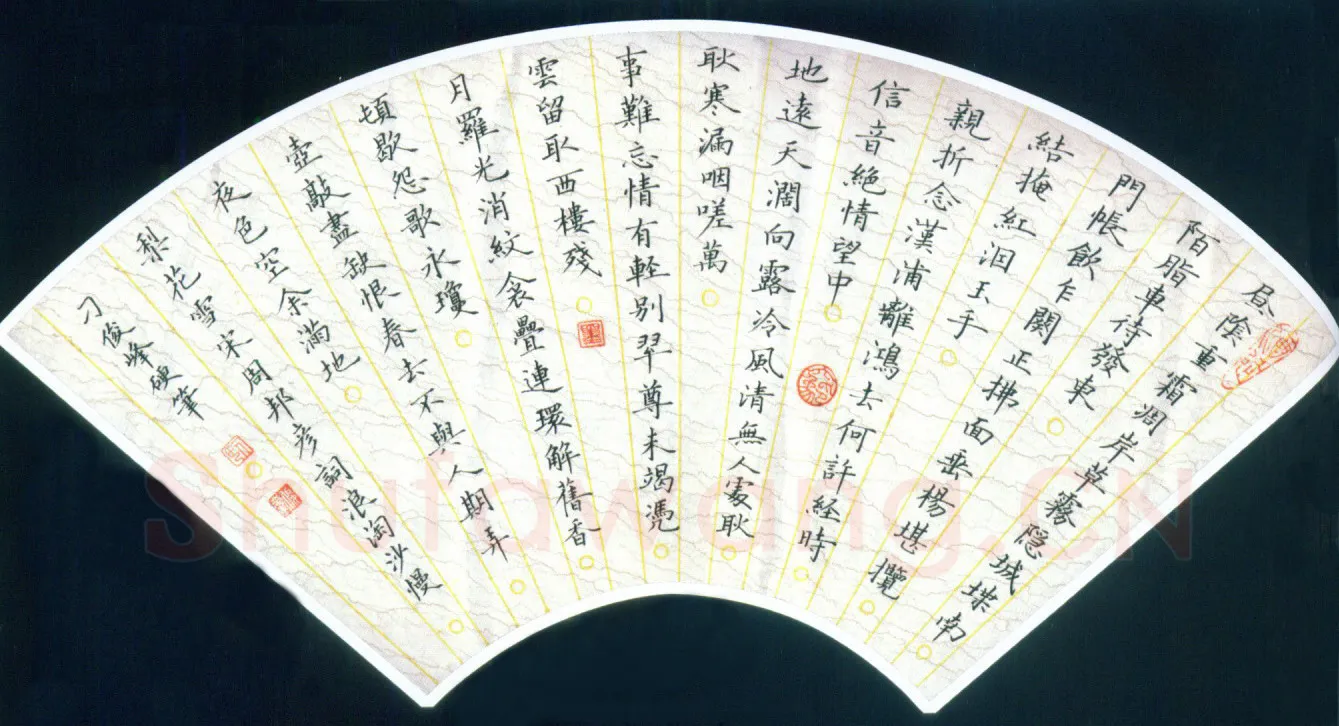 昼陰重霜凋岸草霧隐城堞南
陌脂車待發東
門帳飲乍闋正拂面垂楊堪攬
結掩紅泪玉手
親折念漢浦離鴻去何許経時
信音絶情望中
地遠天濶向露冷風清無人處耿
耿寒漏咽嗟萬
事難忘情有軽别翠尊未竭憑
雲留取西樓殘
月羅光消紋衾疊連環解舊香
頓歇怨歌永瓊
壺敲盡缺恨春去不與人期弄
夜色空余滿地
梨花雪宋周邦彦詞浪淘沙慢
刁俊峰硬筆
墨
Shufawang.CN